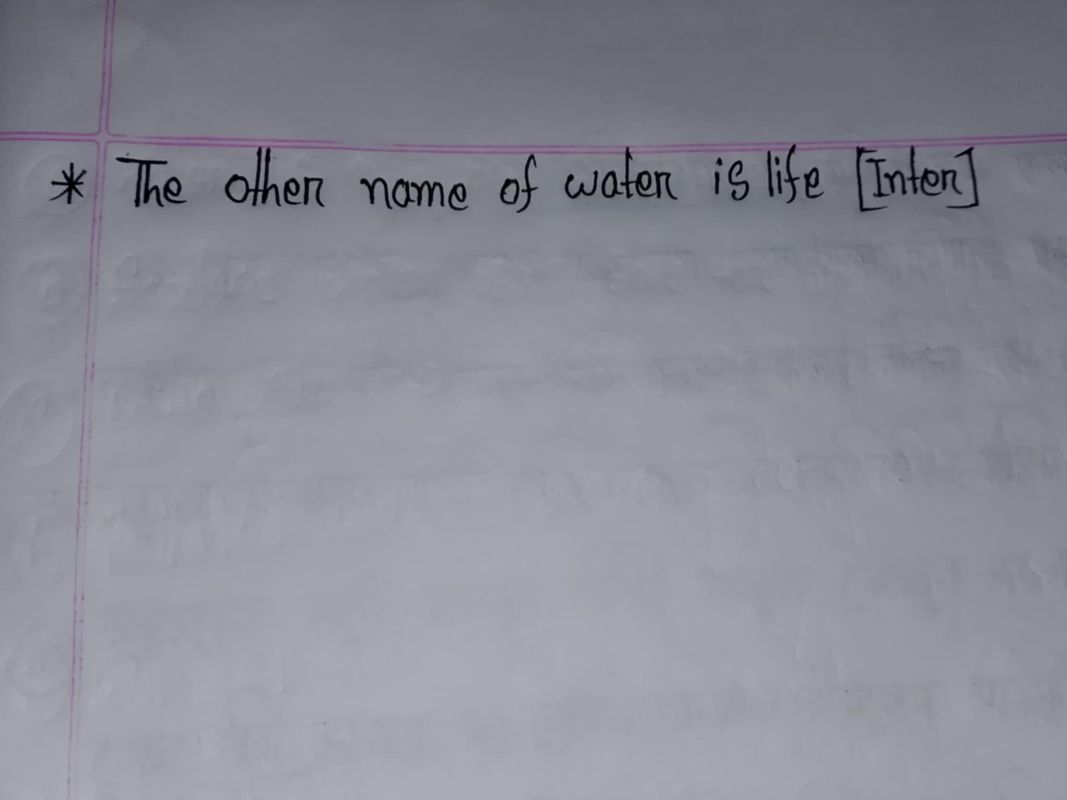 * The other name of water is life [Inter]